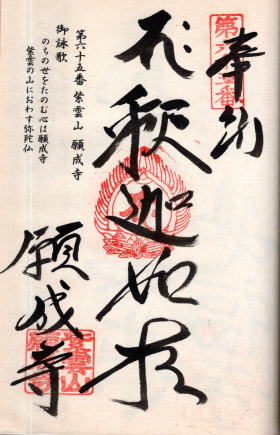 奉納
釈迦如来
第六十五番 紫雲山 願成寺
御詠歌
のちの世をたのむ心は願成寺
紫雲の山におわす弥陀仏
願成寺